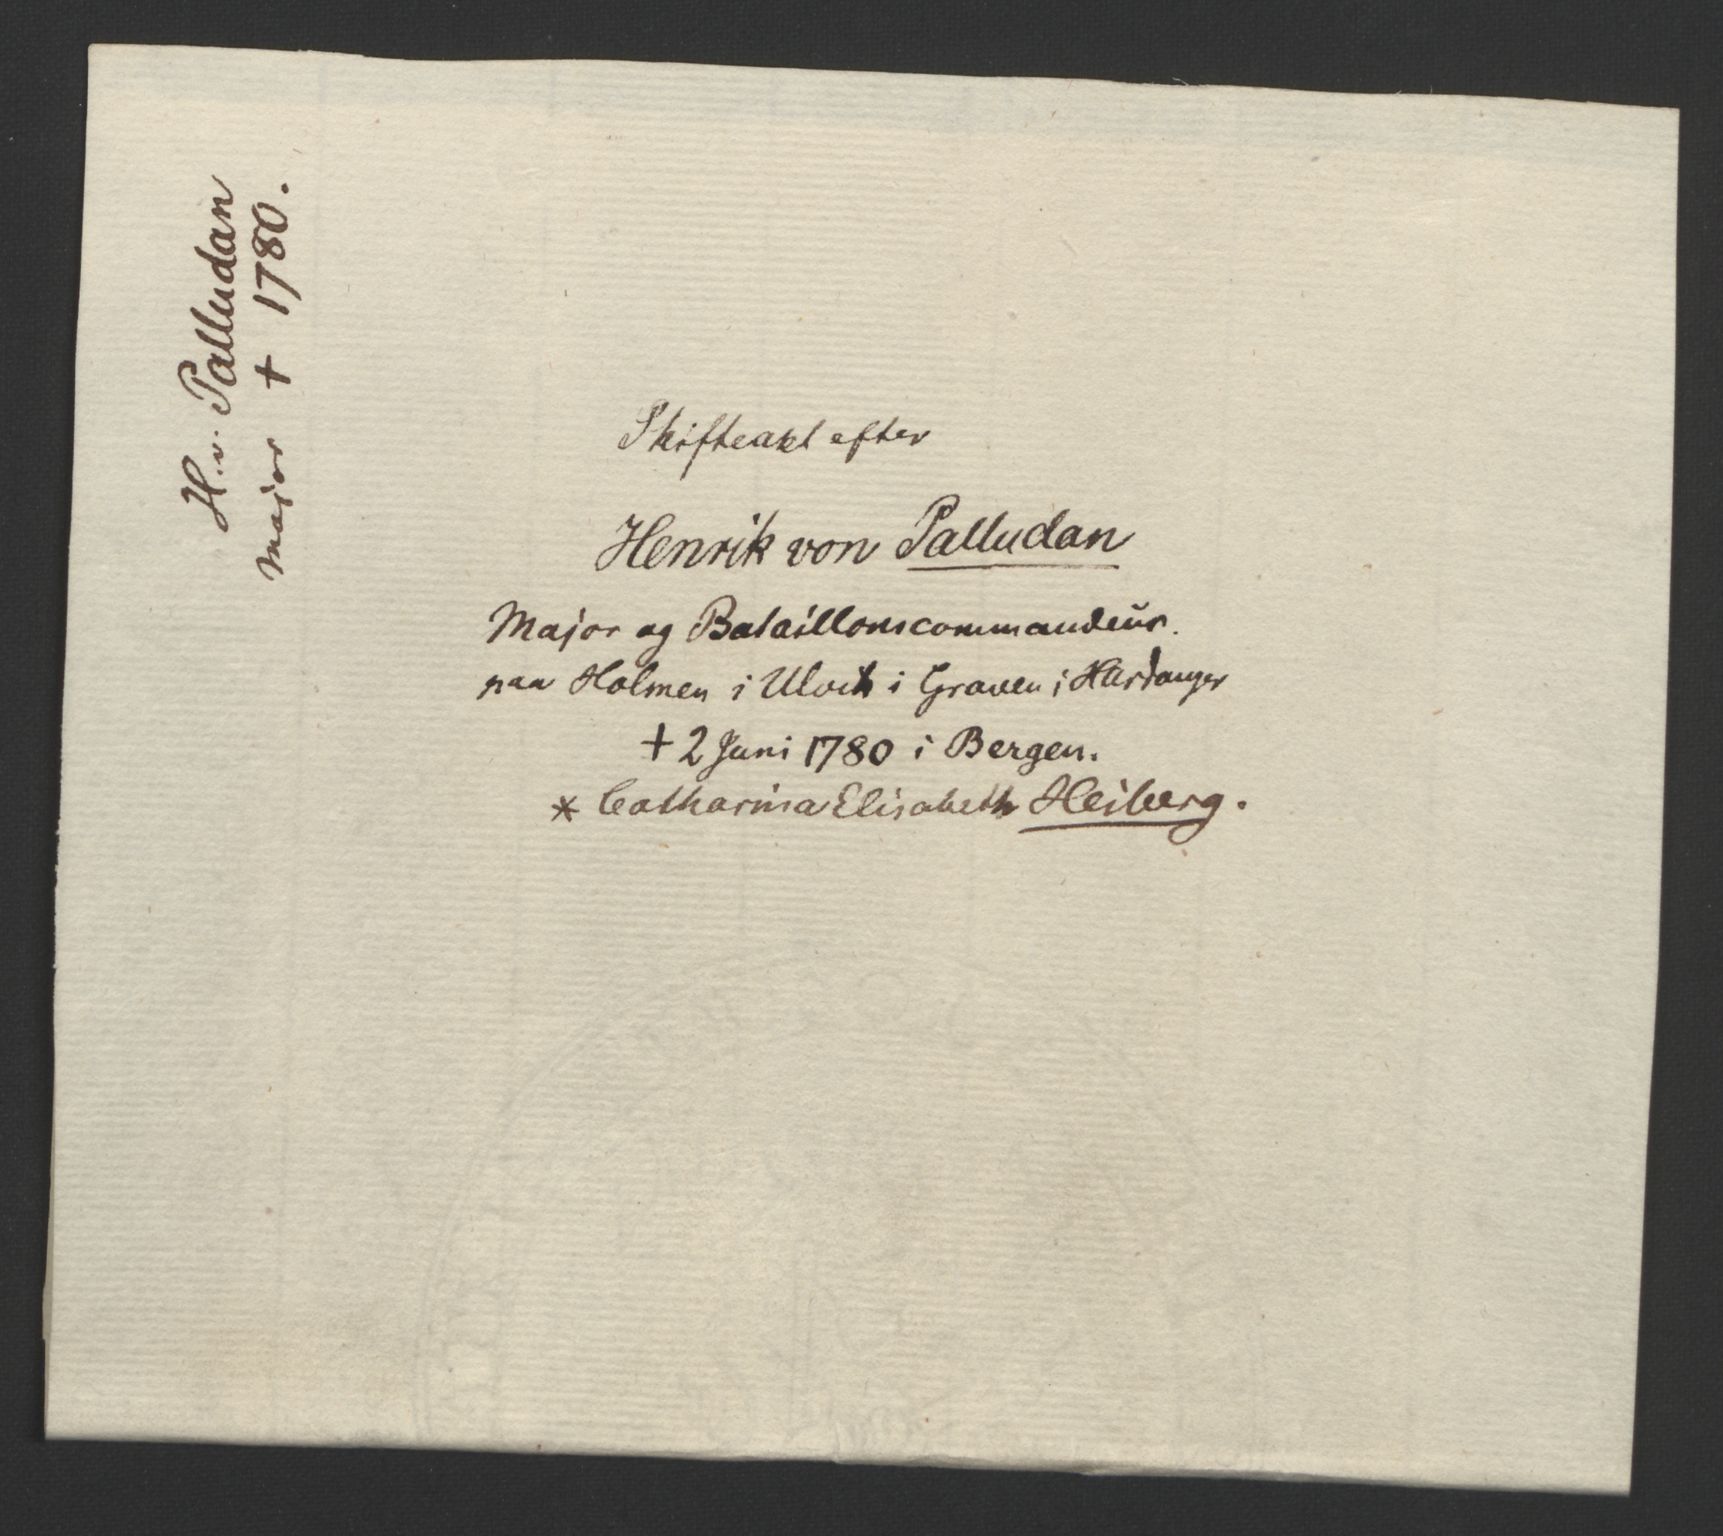 H. v. Palludan
Major † 1780.
Skifteakt efter
Henrik von Palludan
Major og Bataillonscommandeur.
paa Holmen i Ulvik i Graven i Hardanger
† 2 Juni 1780 i Bergen.
* Catharina Elisabeth Heiberg.